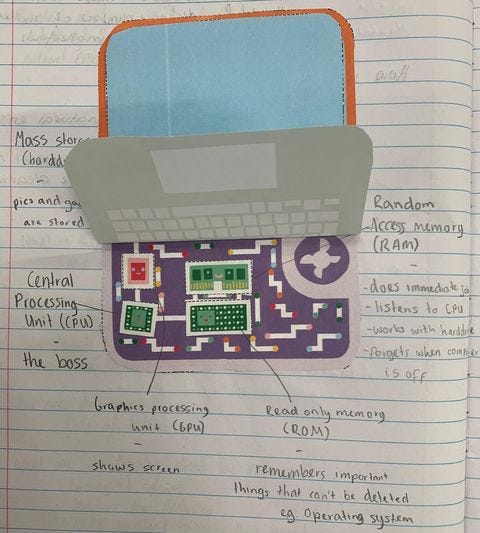 Mass
-
pics and
are stored
Central
Processing
Unit (CPU)
-
the boss
Random
Access memory
(RAM)
-
-does immediate
-listens to CPU
-works with
-forgets when
is off
Graphics processing
unit (GPU)
-
shows screen
Read only memory
(ROM)
-
remembers important
things that can't be deleted
eg. Operating system